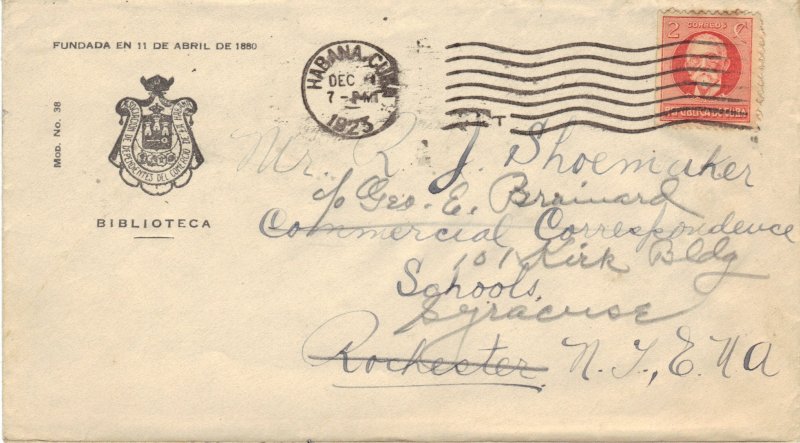 FUNDADA EN 11 DE ABRIL DE 1880
Mod. No. 38
ASOCIACION DE DEPENDIENTES DEL COMERCIO DE LA HABANA
BIBLIOTECA
HABANA, CUBA
DEC
7 - PM
1923
2 CORREOS C
REPUBLICA DE CUBA
Mr. R. J. Shoemaker
c/o Geo. E. Brainard
Commercial Correspondence
101 Kirk Bldg
Schools,
Syracuse
Rochester N. Y., E. U. A